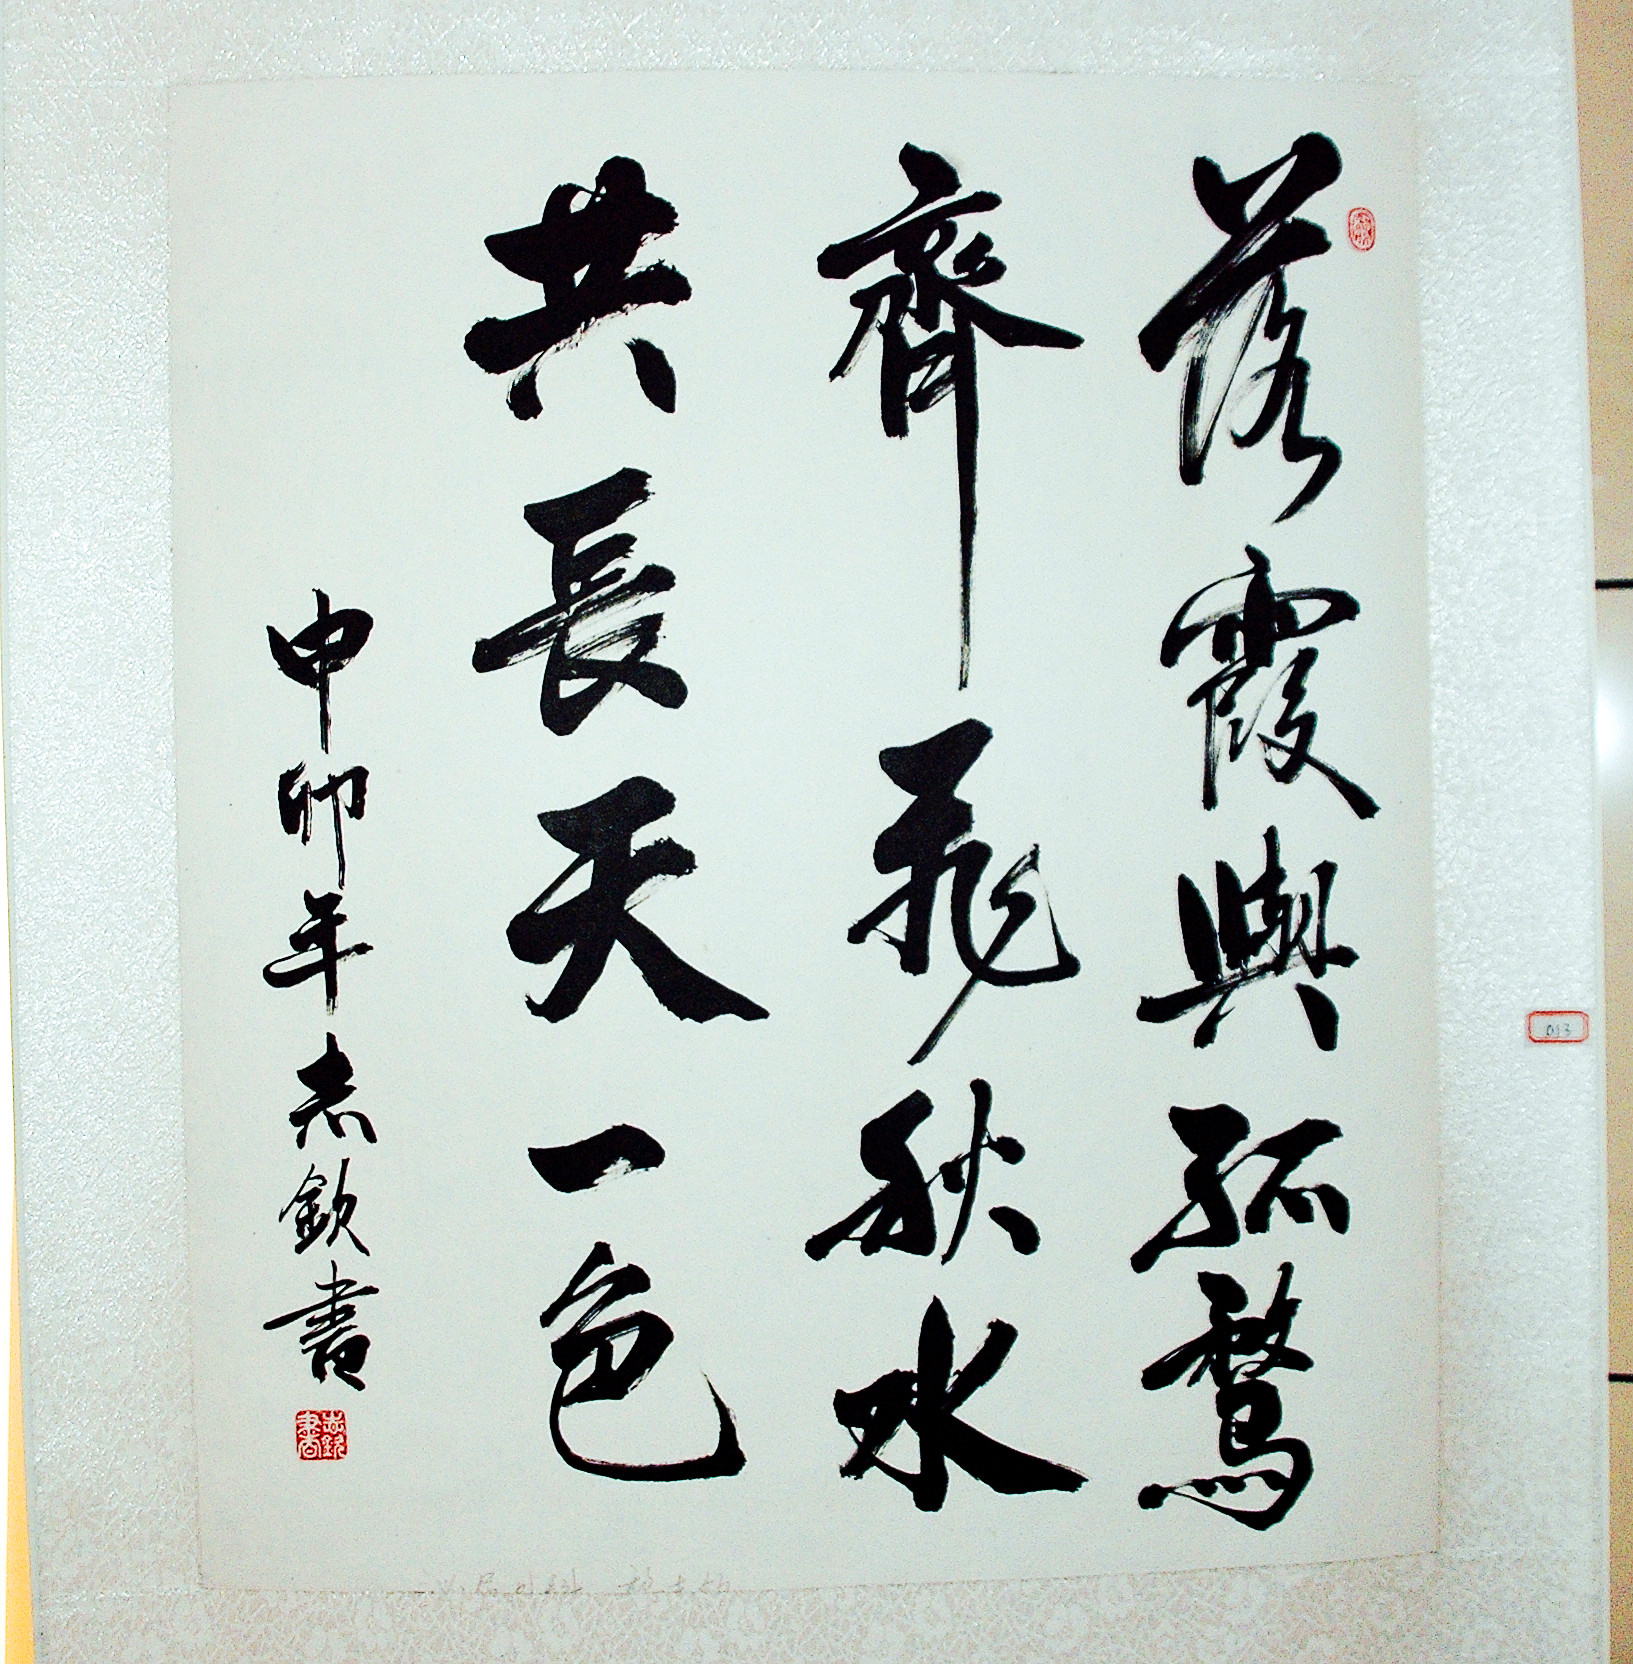 落霞與孤鶩
齊飛秋水
共長天一色
申卯年志欽書
志欽書
013